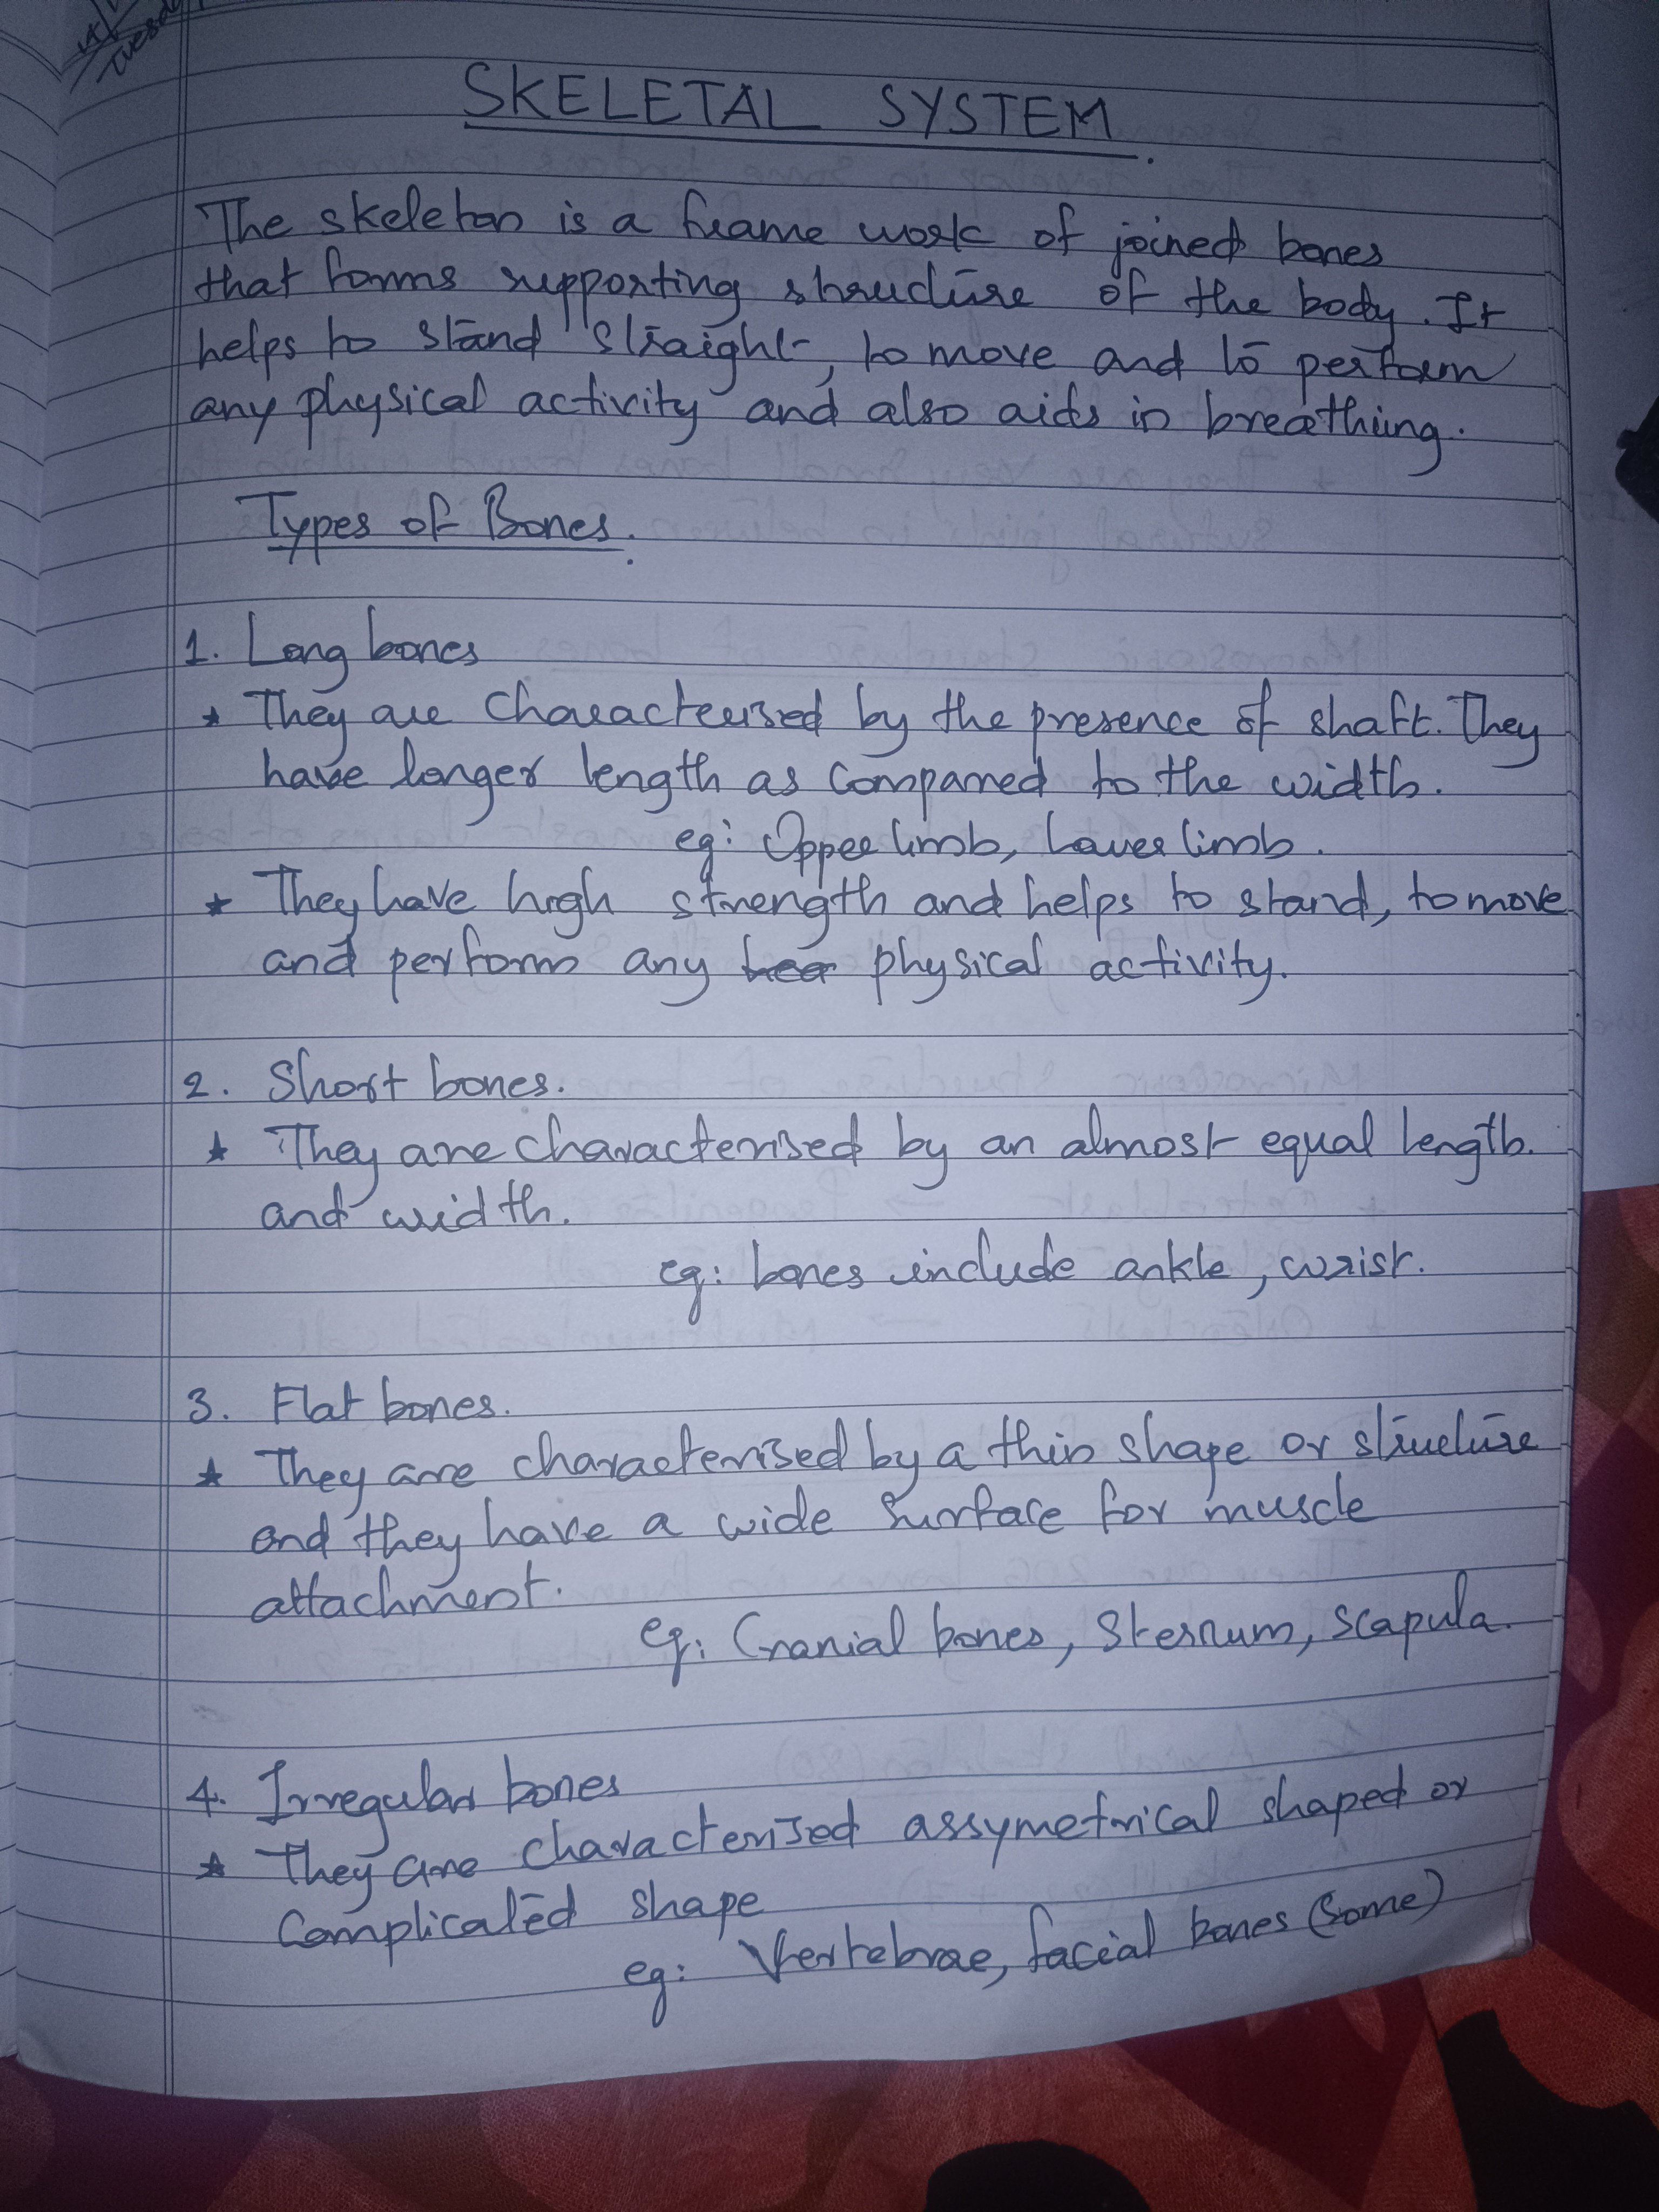 Tuesday
SKELETAL SYSTEM.
The skeleton is a frame work of joined bones
that forms supporting structure of the body. It
helps to stand straight, to move and to perform
any physical activity and also aids in breathing.
Types of Bones.
1. Long bones
* They are characterised by the presence of shaft. They
have longer length as compared to the width.
eg: Upper limb, Lower limb.
* They have high strength and helps to stand, to move
and perform any physical activity.
2. Short bones.
* They are characterised by an almost equal length.
and width.
eg: bones include ankle, wrist.
3. Flat bones.
* They are characterised by a thin shape or structure
and they have a wide surface for muscle
attachment.
eg: Cranial bones, Sternum, Scapula.
4. Irregular bones
* They are characterised assymetrical shaped or
Complicated shape
eg: Vertebrae, facial bones (Some)